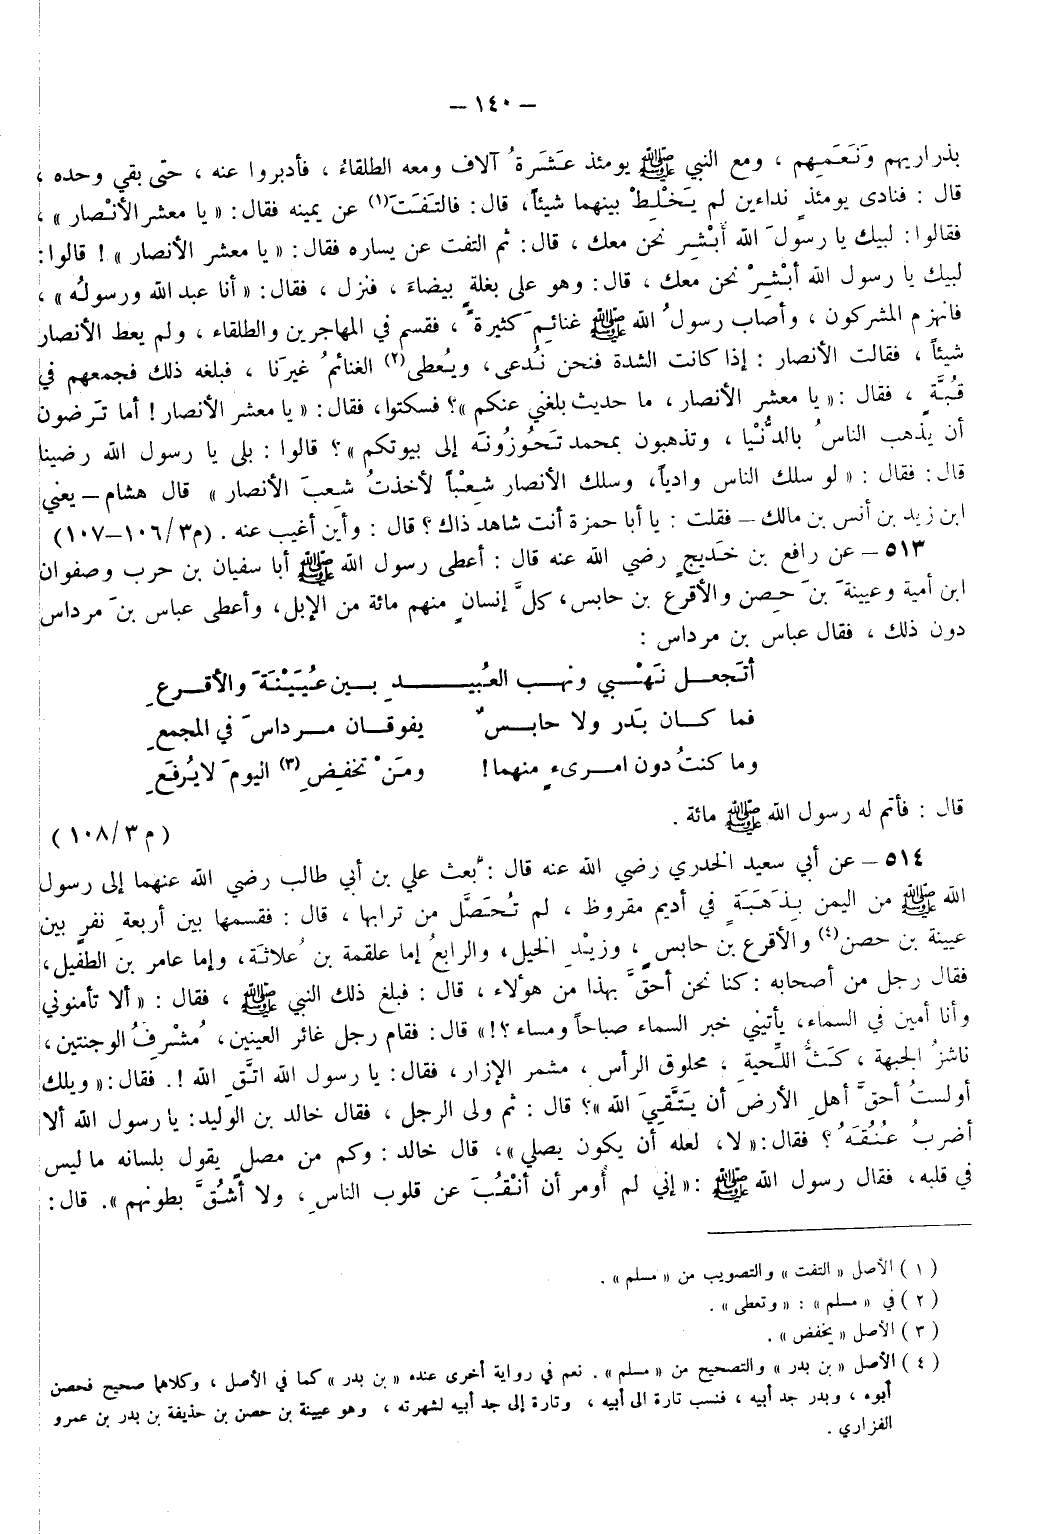 – ١٤٠ –
بذراريهم وَنَعَمِهِم ، ومع النبي ﷺ يومئذ عَشَرَةُ آلاف ومعه الطلقاءُ ، فأدبروا عنه ، حتى بقي وحده ،
قال : فنادى يومئذٍ نداءين لم يَخْلِطْ بينهما شيئاً، قال: فالتَفَتَ(١) عن يمينه فقال: « يا معشر الأنْصار » ،
فقالوا: لبيك يا رسولَ الله أَبْشِر نحن معك ، قال: ثم التفت عن يساره فقال: « يا معشر الأنصار » ! قالوا:
لبيك يا رسول الله أبْشِرْ نحن معك ، قال: وهو على بغلةٍ بيضاءَ ، فنزل ، فقال: « أنا عبد الله ورسولُه » ،
فانهزم المشركون ، وأصاب رسولُ الله ﷺ غنائِمَ كثيرةً ، فقسم في المهاجرين والطلقاء ، ولم يعط الأنصار
شيئاً ، فقالت الأنصار : إذا كانت الشدة فنحن نُدعى، ويُعطى(٢) الغنائمُ غيرَنا ، فبلغه ذلك فجمعهم في
قُبَّةٍ ، فقال :« يا معشر الأنصار ، ما حديث بلغني عنكم »؟ فسكتوا، فقال: « يا معشر الأنصار ! أما تَرضون
أن يذهب الناسُ بالدُّنْيا ، وتذهبون بمحمد تَحُوزُونَه إلى بيوتكم »؟ قالوا : بلى يا رسول الله رضينا
قال: فقال : « لو سلك الناس وادياً، وسلك الأنصار شِعْباً لأخذتُ شِعبَ الأنصار » قال هشام – يعني
ابن زيد بن أنس بن مالك – فقلت : يا أبا حمزة أنت شاهد ذاك ؟ قال : وأين أغيب عنه . (م٣/ ١٠٦–١٠٧)
٥١٣ – عن رافع بن خَديجٍ رضي الله عنه قال : أعطى رسول الله ﷺ أبا سفيان بن حرب وصفوان
ابن أمية وعيينةَ بنَ حِصن والأقرع بن حابس، كلَّ إنسانٍ منهم مائة من الإبل، وأعطى عباس بنَ مرداس
دون ذلك ، فقال عباس بن مرداس :
أتَجعل نَهْبي ونهب العُبيـدِ بين عُيَيْنَةَ والأقرعِ
فما كان بَدر ولا حابسٌ يفوقان مرداسَ في المجمعِ
وما كنتُ دون امرىءٍ منهما! ومَنْ تخفِضِ (٣) اليومَ لا يُرفَعِ
قال : فأتم له رسول الله ﷺ مائة . (م٣/ ١٠٨)
٥١٤ – عن أبي سعيد الخدري رضي الله عنه قال : بُعث علي بن أبي طالب رضي الله عنهما إلى رسول
الله ﷺ من اليمن بِذَهَبَةٍ في أديم مقروظ ، لم تُحَصَّل من ترابها ، قال : فقسمها بين أربعةِ نفرٍ بين
عيينة بن حصن(٤) والأقرع بن حابسٍ ، وزيْدِ الخيل، والرابعُ إما علقمة بن عُلاثَة، وإما عامر بن الطفيل،
فقال رجل من أصحابه : كنا نحن أحقَّ بهذا من هؤلاء ، قال : فبلغ ذلك النبي ﷺ ، فقال : « ألا تأمنوني
وأنا أمين في السماء، يأتيني خبر السماء صباحاً ومساء ؟!» قال: فقام رجل غائر العينين، مُشْرِفُ الوجنتين،
ناشزُ الجبهة ، كَثُّ اللِّحيةِ ، محلوق الرأس ، مشمر الإزار، فقال: يا رسول الله اتَّقِ الله !. فقال:« ويلك
أولستُ أحقَّ أهلِ الأرض أن يَتَّقِيَ الله »؟ قال : ثم ولى الرجل ، فقال خالد بن الوليد: يا رسول الله ألا
أضربُ عُنُقَهُ ؟ فقال:« لا، لعله أن يكون يصلي »، قال خالد : وكم من مصلٍ يقول بلسانه ما ليس
في قلبه، فقال رسول الله ﷺ :« إني لم أُومر أن أنْقُبَ عن قلوب الناسِ ، ولا أشُقَّ بطونهم ». قال:
(١) الأصل « التفت » والتصويب من « مسلم » .
(٢) في « مسلم » : « وتعطى » .
(٣) الأصل « يخفض » .
(٤) الأصل « بن بدر » والتصحيح من « مسلم » . نعم في رواية أخرى عنده « بن بدر » كما في الأصل ، وكلاهما صحيح فحصن
أبوه ، وبدر جد أبيه ، فنسب تارة الى أبيه ، وتارة إلى جد أبيه لشهرته ، وهو عيينة بن حصن بن حذيفة بن بدر بن عمرو
الفزاري .